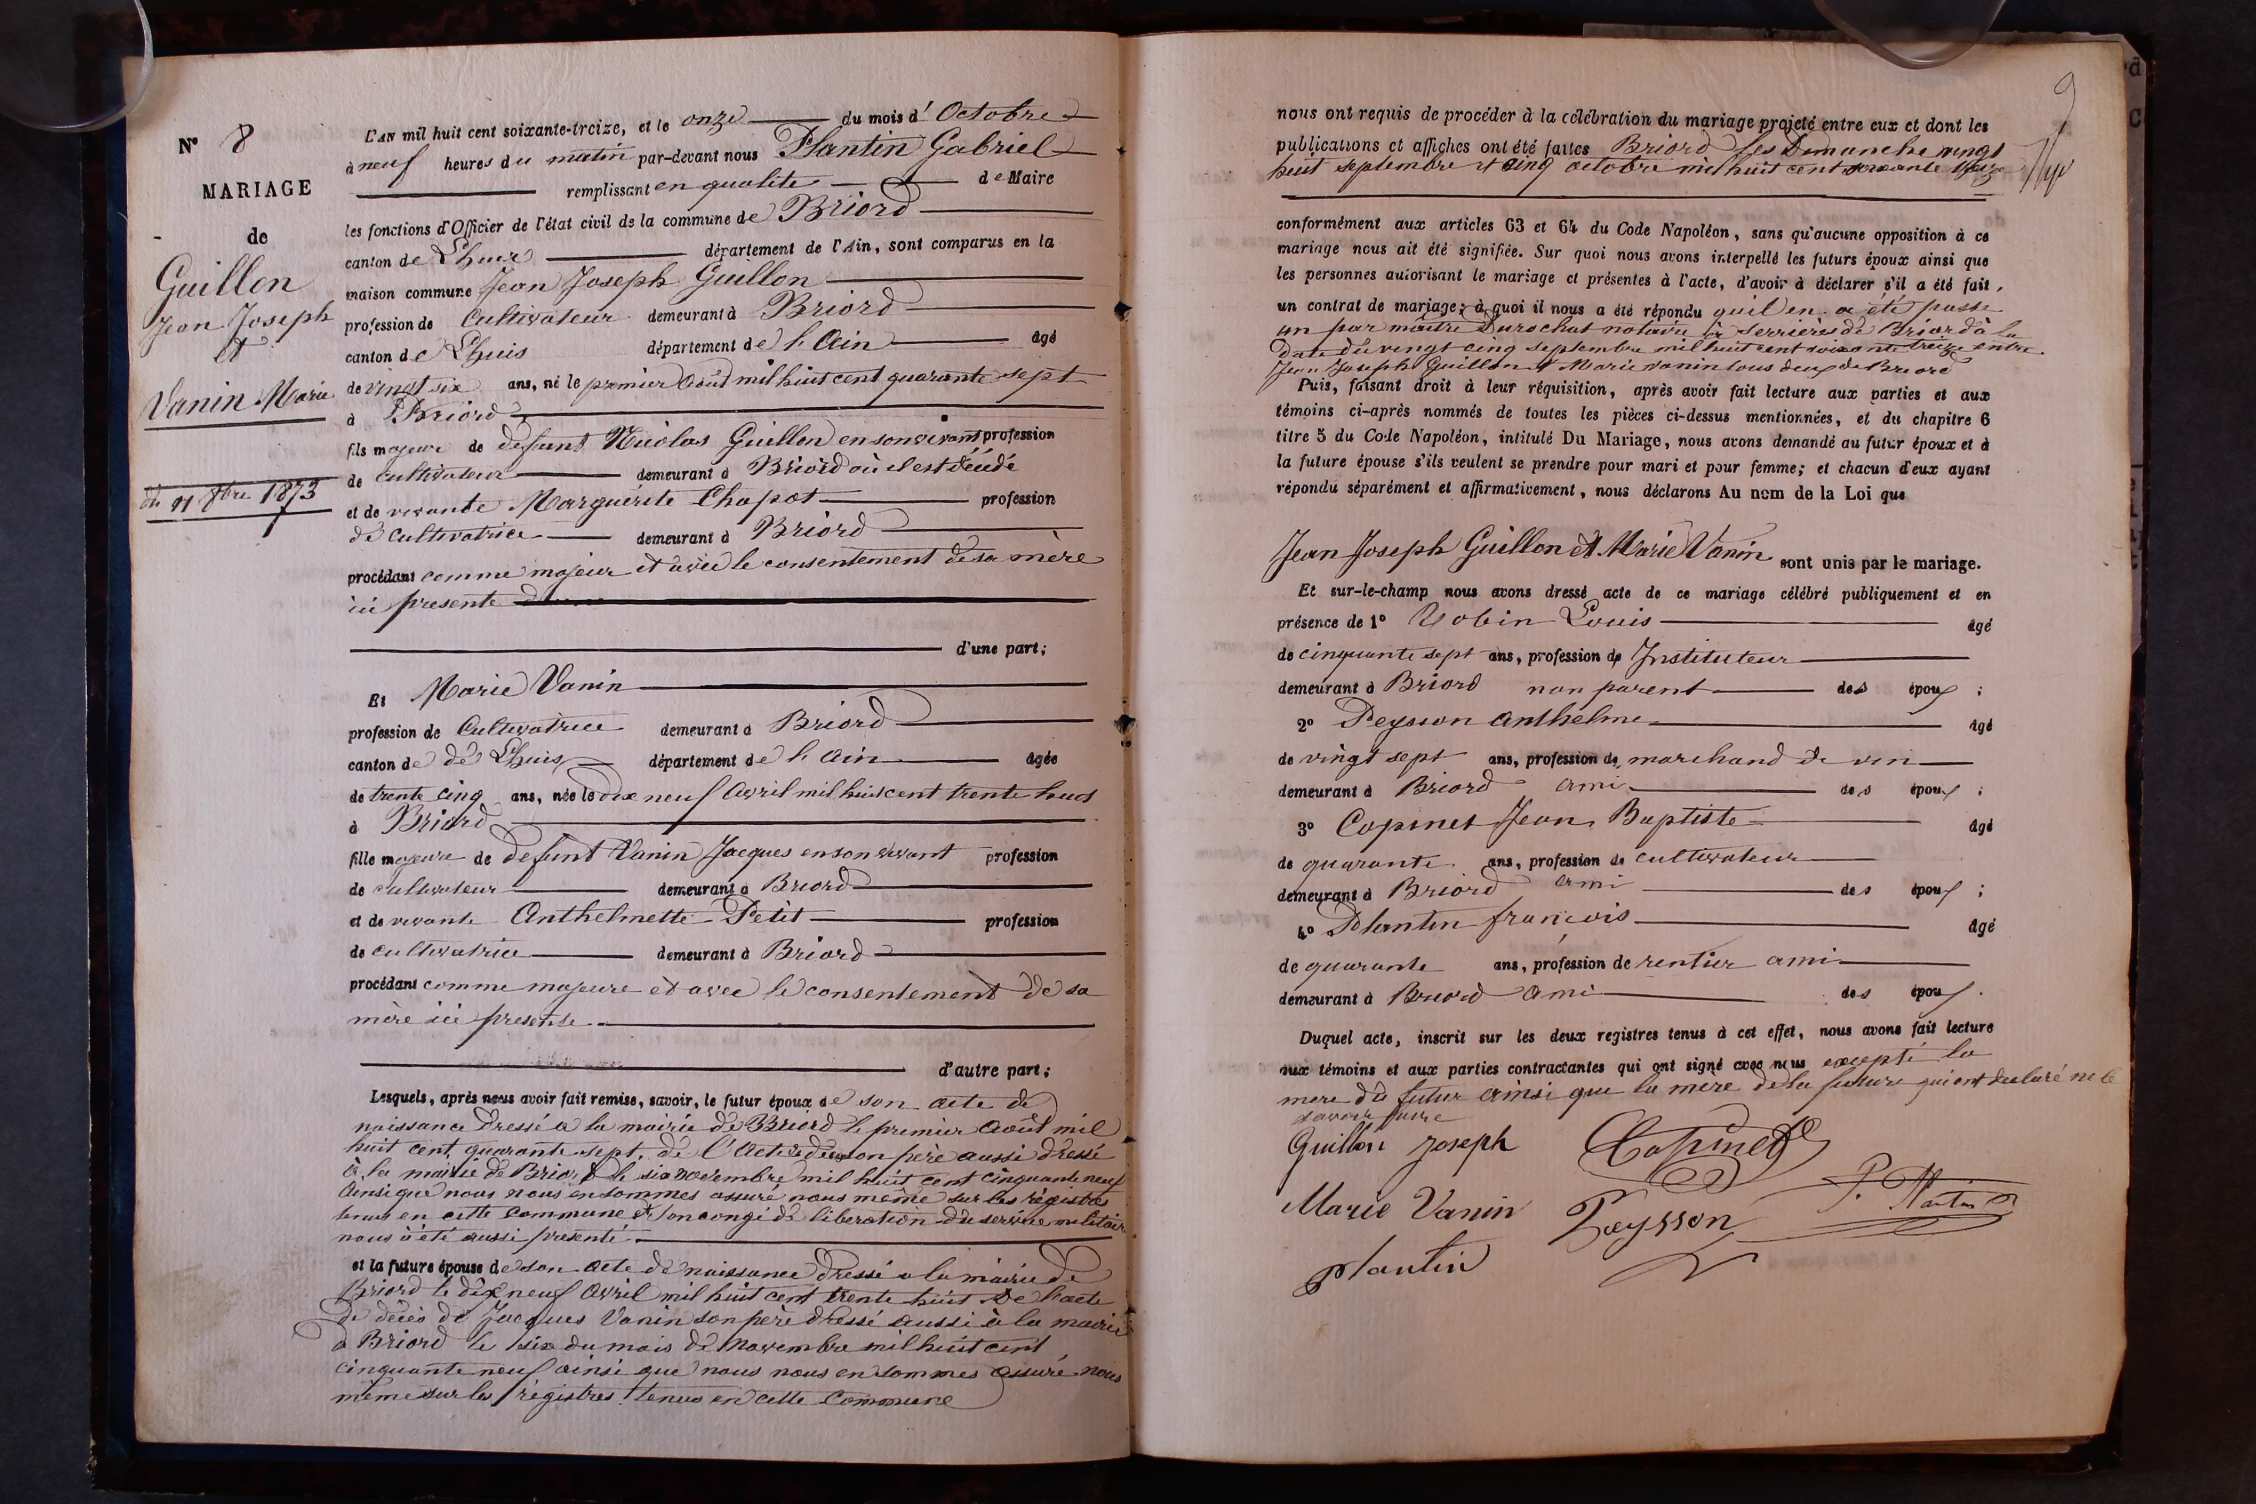 N° 8
MARIAGE
de
Guillon
Jean Joseph
et
Vanin Marie
du 11 8bre 1873
L'AN mil huit cent soixante-treize, et le onze du mois d'Octobre
à neuf heures du matin par-devant nous Plantin Gabriel
remplissant en qualité de Maire
les fonctions d'Officier de l'état civil de la commune de Briord
canton de Lhuis département de l'Ain, sont comparus en la
maison commune Jean Joseph Guillon
profession de Cultivateur demeurant à Briord
canton de Lhuis département de l'Ain âgé
de vingt six ans, né le premier août mil huit cent quarante sept
à Briord
fils majeur de defunt Nicolas Guillon en son vivant profession
de cultivateur demeurant à Briord où il est décédé
et de vivante Marguerite Chapot profession
de cultivatrice demeurant à Briord
procédant comme majeur et avec le consentement de sa mère
ici presente
d'une part;
Et Marie Vanin
profession de Cultivatrice demeurant à Briord
canton de de Lhuis département de l'Ain âgée
de trente cinq ans, née le dix neuf Avril mil huit cent trente huit
à Briord
fille majeure de defunt Vanin Jacques en son vivant profession
de cultivateur demeurant à Briord
et de vivante Anthelmette Petit profession
de cultivatrice demeurant à Briord
procédant comme majeure et avec le consentement de sa
mère ici presente
d'autre part;
Lesquels, après nous avoir fait remise, savoir, le futur époux de son acte de
naissance dressé a la mairie de Briord le premier août mil
huit cent quarante sept, de l'Acte de son père aussi dressé
à la mairie de Briord le six novembre mil huit cent cinquante neuf
Ainsi que nous nous en sommes assuré nous même sur les régistres
tenus en cette commune et son congé de libération du service militaire
nous à été aussi presenté
et la future épouse de son acte de naissance dressé a la mairie de
Briord le dix neuf Avril mil huit cent trente huit de l'acte
de décès de Jacques Vanin son père dressé aussi à la mairie
à Briord le six du mois de Novembre mil huit cent
cinquante neuf ainsi que nous nous en sommes assuré nous
même sur les régistres tenus en cette Commune
9
nous ont requis de procéder à la célébration du mariage projeté entre eux et dont les
publications et affiches ont été faites Briord les Dimanche vingt
huit septembre et cinq octobre mil huit cent soixante treize
conformément aux articles 63 et 64 du Code Napoléon, sans qu'aucune opposition à ce
mariage nous ait été signifiée. Sur quoi nous avons interpellé les futurs époux ainsi que
les personnes autorisant le mariage et présentes à l'acte, d'avoir à déclarer s'il a été fait,
un contrat de mariage; à quoi il nous a été répondu quil en a été passé
un par maitre Durochat notaire à Serrières de Briord à la
date du vingt cinq septembre mil huit cent soixante treize entre
Jean Joseph Guillon et Marie Vanin tous deux de Briord
Puis, faisant droit à leur réquisition, après avoir fait lecture aux parties et aux
témoins ci-après nommés de toutes les pièces ci-dessus mentionnées, et du chapitre 6
titre 5 du Code Napoléon, intitulé Du Mariage, nous avons demandé au futur époux et à
la future épouse s'ils veulent se prendre pour mari et pour femme; et chacun d'eux ayant
répondu séparément et affirmativement, nous déclarons Au nom de la Loi que
Jean Joseph Guillon et Marie Vanin sont unis par le mariage.
Et sur-le-champ nous avons dressé acte de ce mariage célébré publiquement et en
présence de 1° Robin Louis âgé
de cinquante sept ans, profession de Instituteur
demeurant à Briord non parent des époux ;
2° Peysson Anthelme âgé
de vingt sept ans, profession de marchand de vin
demeurant à Briord ami des époux ;
3° Copinet Jean Baptiste âgé
de quarante ans, profession de cultivateur
demeurant à Briord ami des époux ;
4° Plantin françois âgé
de quarante ans, profession de rentier ami
demeurant à Briord ami des époux.
Duquel acte, inscrit sur les deux registres tenus à cet effet, nous avons fait lecture
aux témoins et aux parties contractantes qui ont signé avec nous excepté la
mere du futur ainsi que la mère de la future qui ont declaré ne le
savoir faire
Guillon Joseph Copinet
Marie Vanin Peysson P. Plantin
plantin